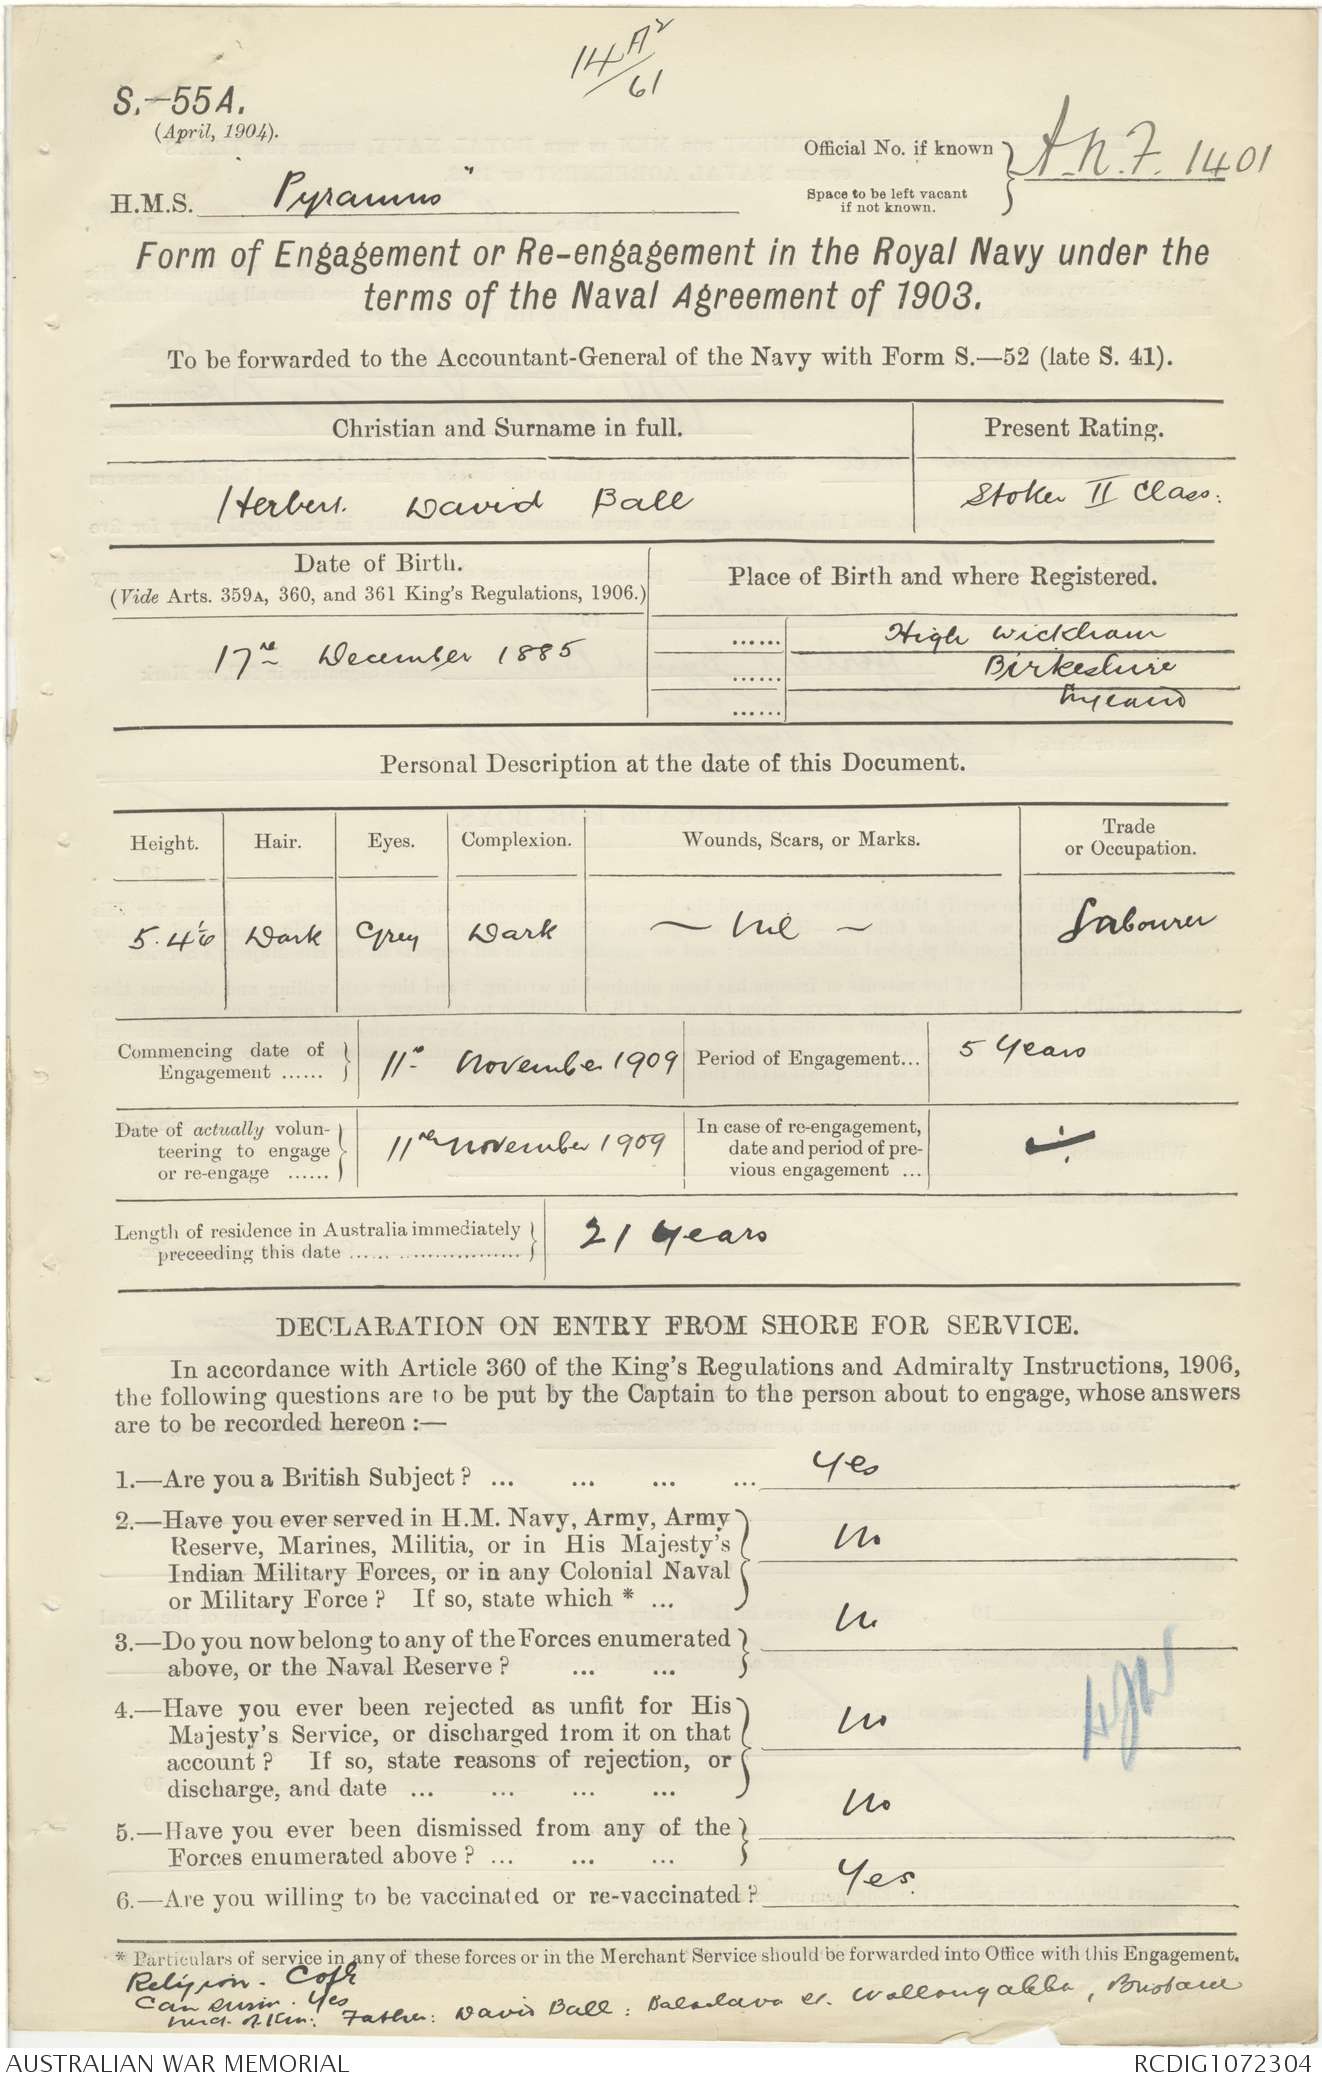 14 A2/61
S.—55A.
(April, 1904).
Official No. if known
A.N.F. 1401
Space to be left vacant
if not known.
H.M.S. "Pyramus"
Form of Engagement or Re-engagement in the Royal Navy under the
terms of the Naval Agreement of 1903.
To be forwarded to the Accountant-General of the Navy with Form S.—52 (late S. 41).
Christian and Surname in full. Present Rating.
Herbert David Ball Stoker II Class:
Date of Birth.
(Vide Arts. 359A, 360, and 361 King's Regulations, 1906.)
Place of Birth and where Registered.
17th December 1885
...... High Wickham
...... Birkeshire
......
Personal Description at the date of this Document.
Height. Hair. Eyes. Complexion. Wounds, Scars, or Marks. Trade
or Occupation.
5.4 Dark Grey Dark ~ Nil ~ Labourer
Commencing date of
Engagement ...... 11th November 1909 Period of Engagement... 5 Years
Date of actually volun-
teering to engage
or re-engage ...... 11th November 1909
In case of re-engagement,
date and period of pre-
vious engagement ...
Length of residence in Australia immediately
preceeding this date ...... .................. 21 Years
DECLARATION ON ENTRY FROM SHORE FOR SERVICE.
In accordance with Article 360 of the King's Regulations and Admiralty Instructions, 1906,
the following questions are to be put by the Captain to the person about to engage, whose answers
are to be recorded hereon :—
1.—Are you a British Subject? ... ... ... ... Yes
2.—Have you ever served in H.M. Navy, Army, Army
Reserve, Marines, Militia, or in His Majesty's
Indian Military Forces, or in any Colonial Naval
or Military Force? If so, state which * ... No
3.—Do you now belong to any of the Forces enumerated
above, or the Naval Reserve? ... ... No
4.—Have you ever been rejected as unfit for His
Majesty's Service, or discharged from it on that
account? If so, state reasons of rejection, or
discharge, and date ... ... ... ... No
5.—Have you ever been dismissed from any of the
Forces enumerated above? ... ... ... No
6.—Are you willing to be vaccinated or re-vaccinated? Yes.
* Particulars of service in any of these forces or in the Merchant Service should be forwarded into Office with this Engagement.
Religion. CofE
Can swim. Yes
next of Kin: Father: David Ball: Balaclava St. Wollongabba, Brisbane
AUSTRALIAN WAR MEMORIAL RCDIG1072304